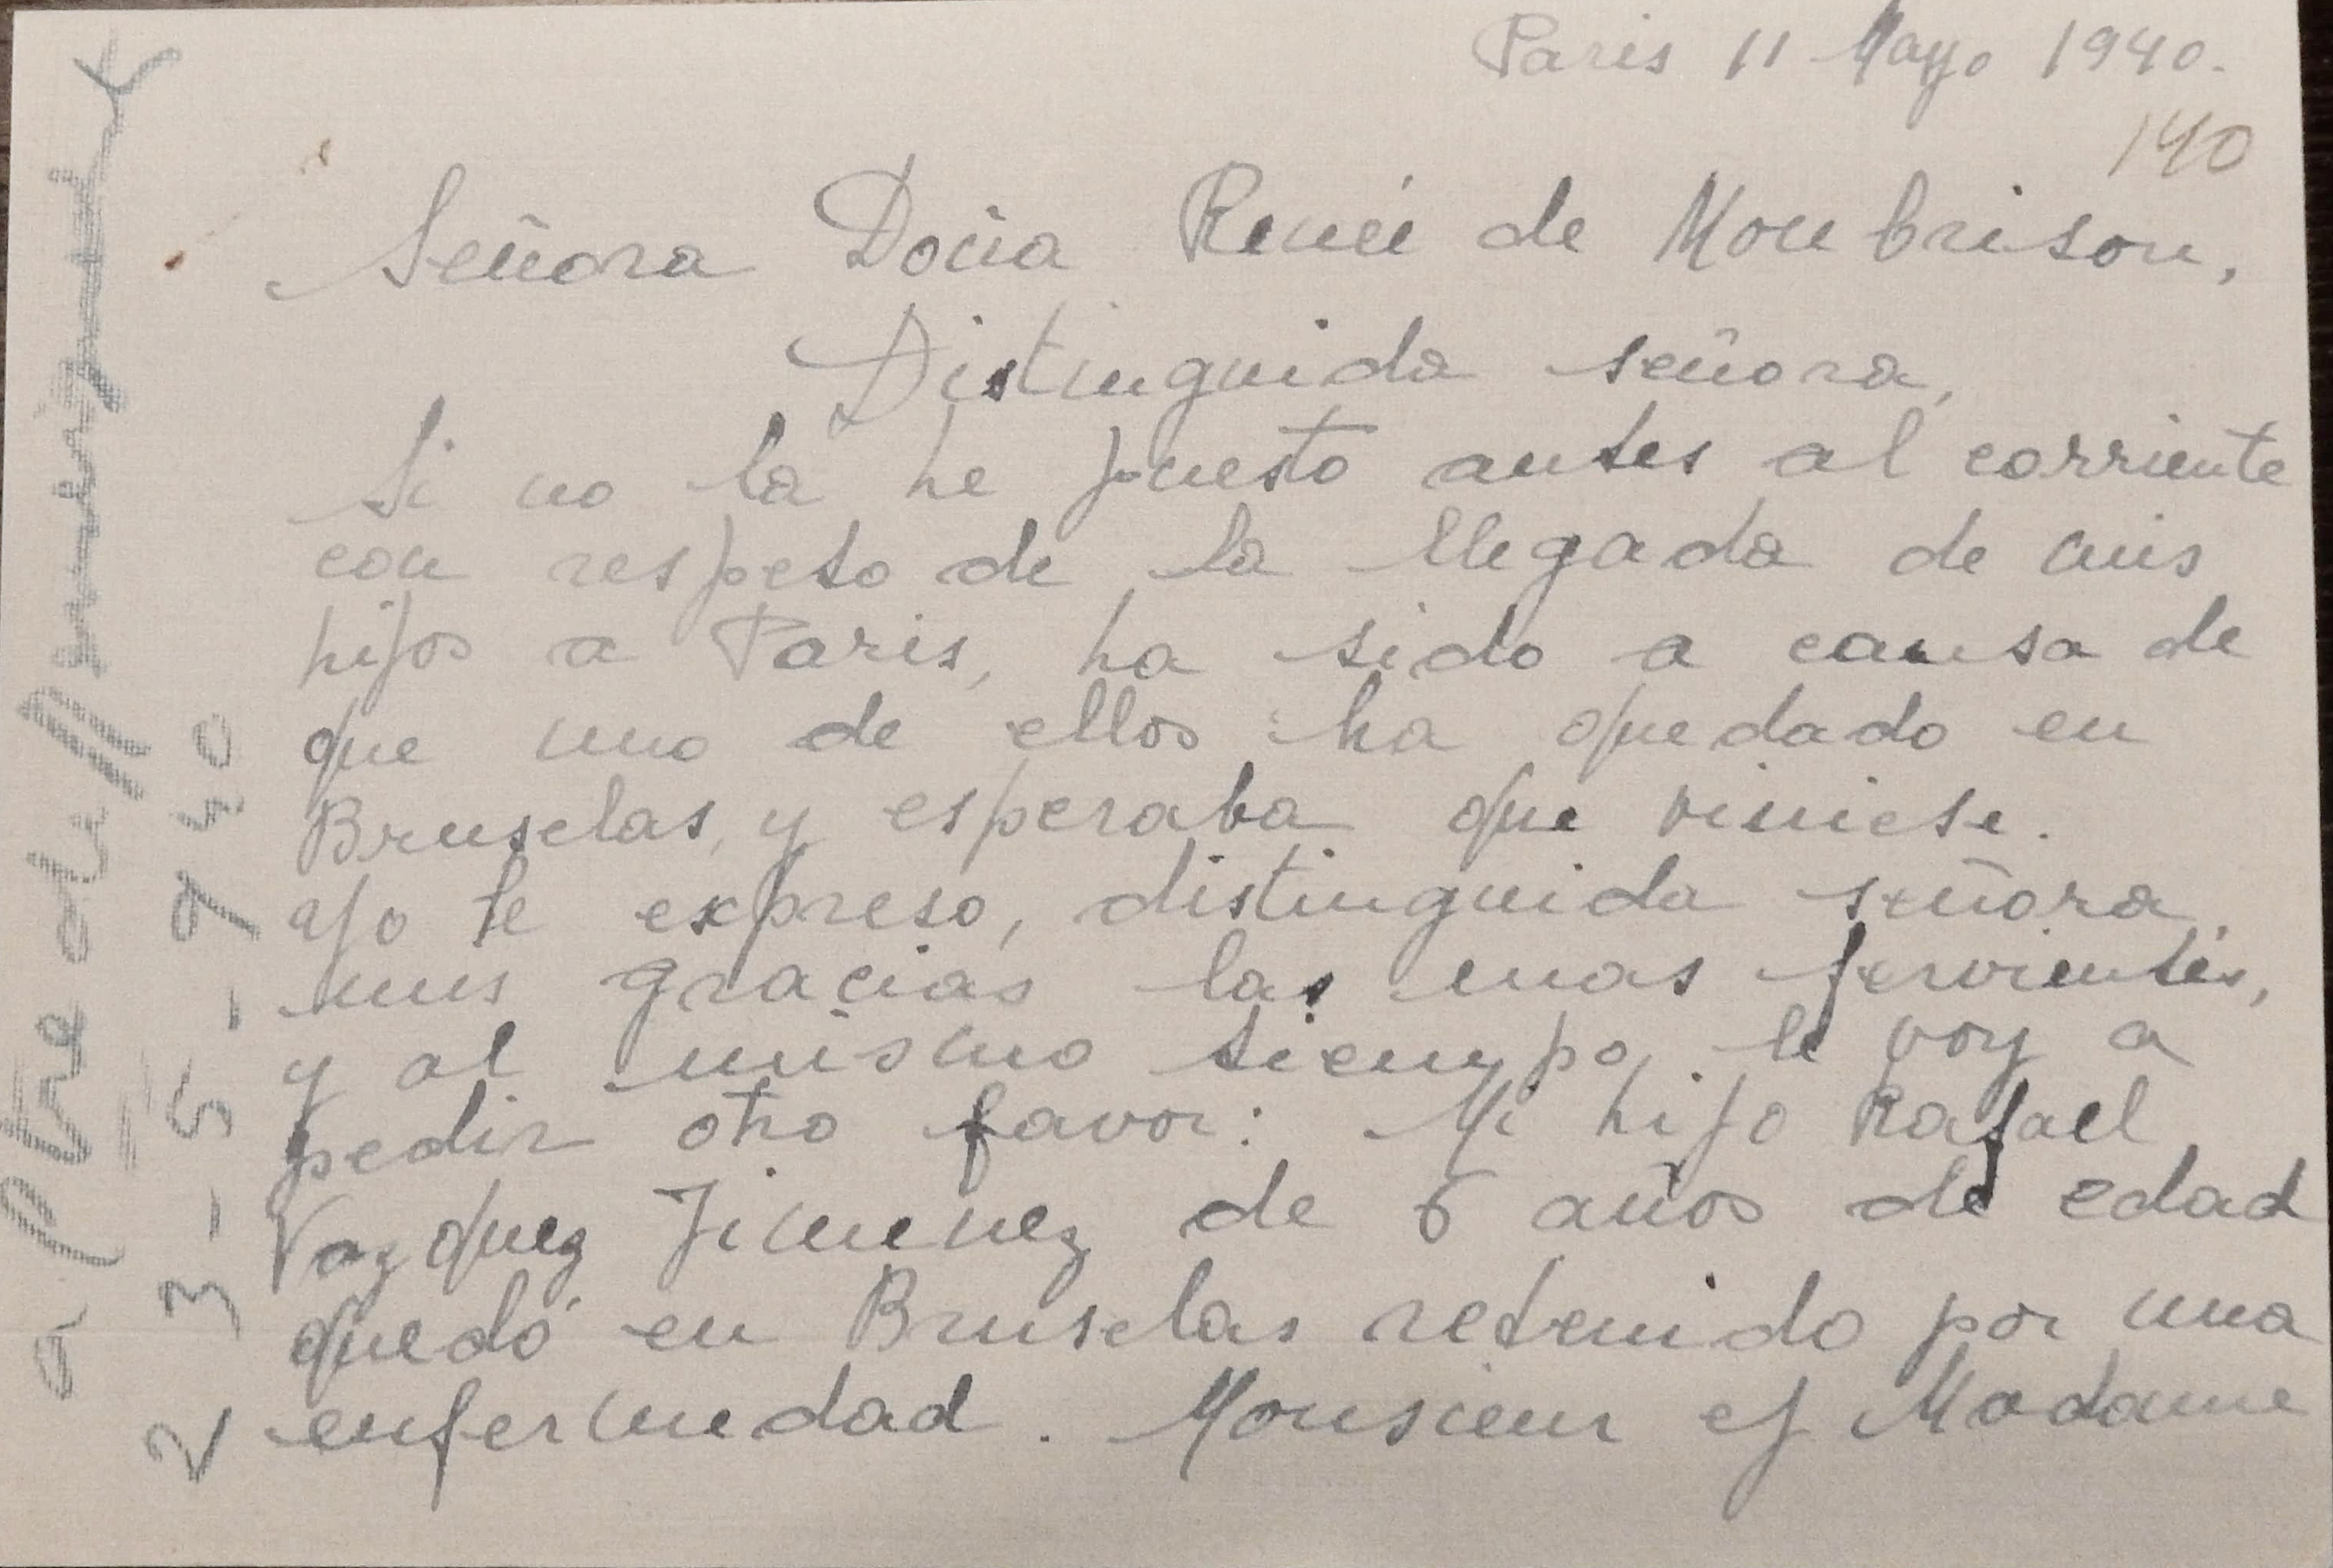 Paris 11 Mayo 1940.
140
Señora Doña Reneé de Monbrison,
Distinguida señora,
Si no la he puesto antes al corriente
con respeto de la llegada de mis
hijos a Paris, ha sido a causa de
que uno de ellos ha quedado en
Bruselas, y esperaba que viniese.
Yo le expreso, distinguida señora,
mis gracias las mas fervientes,
y al mismo tiempo, le voy a
pedir otro favor: Mi hijo Rafael
Vazquez Jimenez de 6 años de edad
quedó en Bruselas retenido por una
enfermedad. Monsieur et Madame
23-5-940